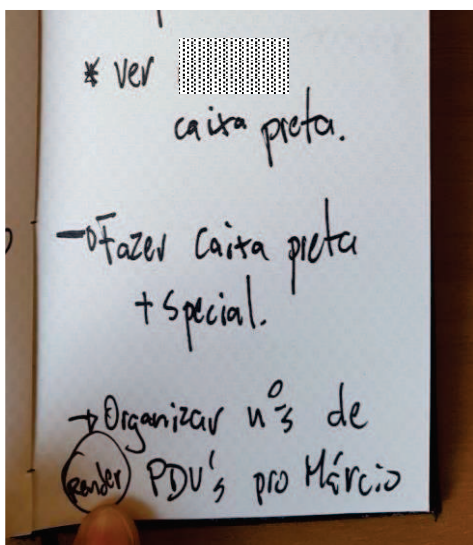 * ver
caixa preta.
→ Fazer caixa preta
+ Special.
→ Organizar nºs de
Render PDV's pro Márcio